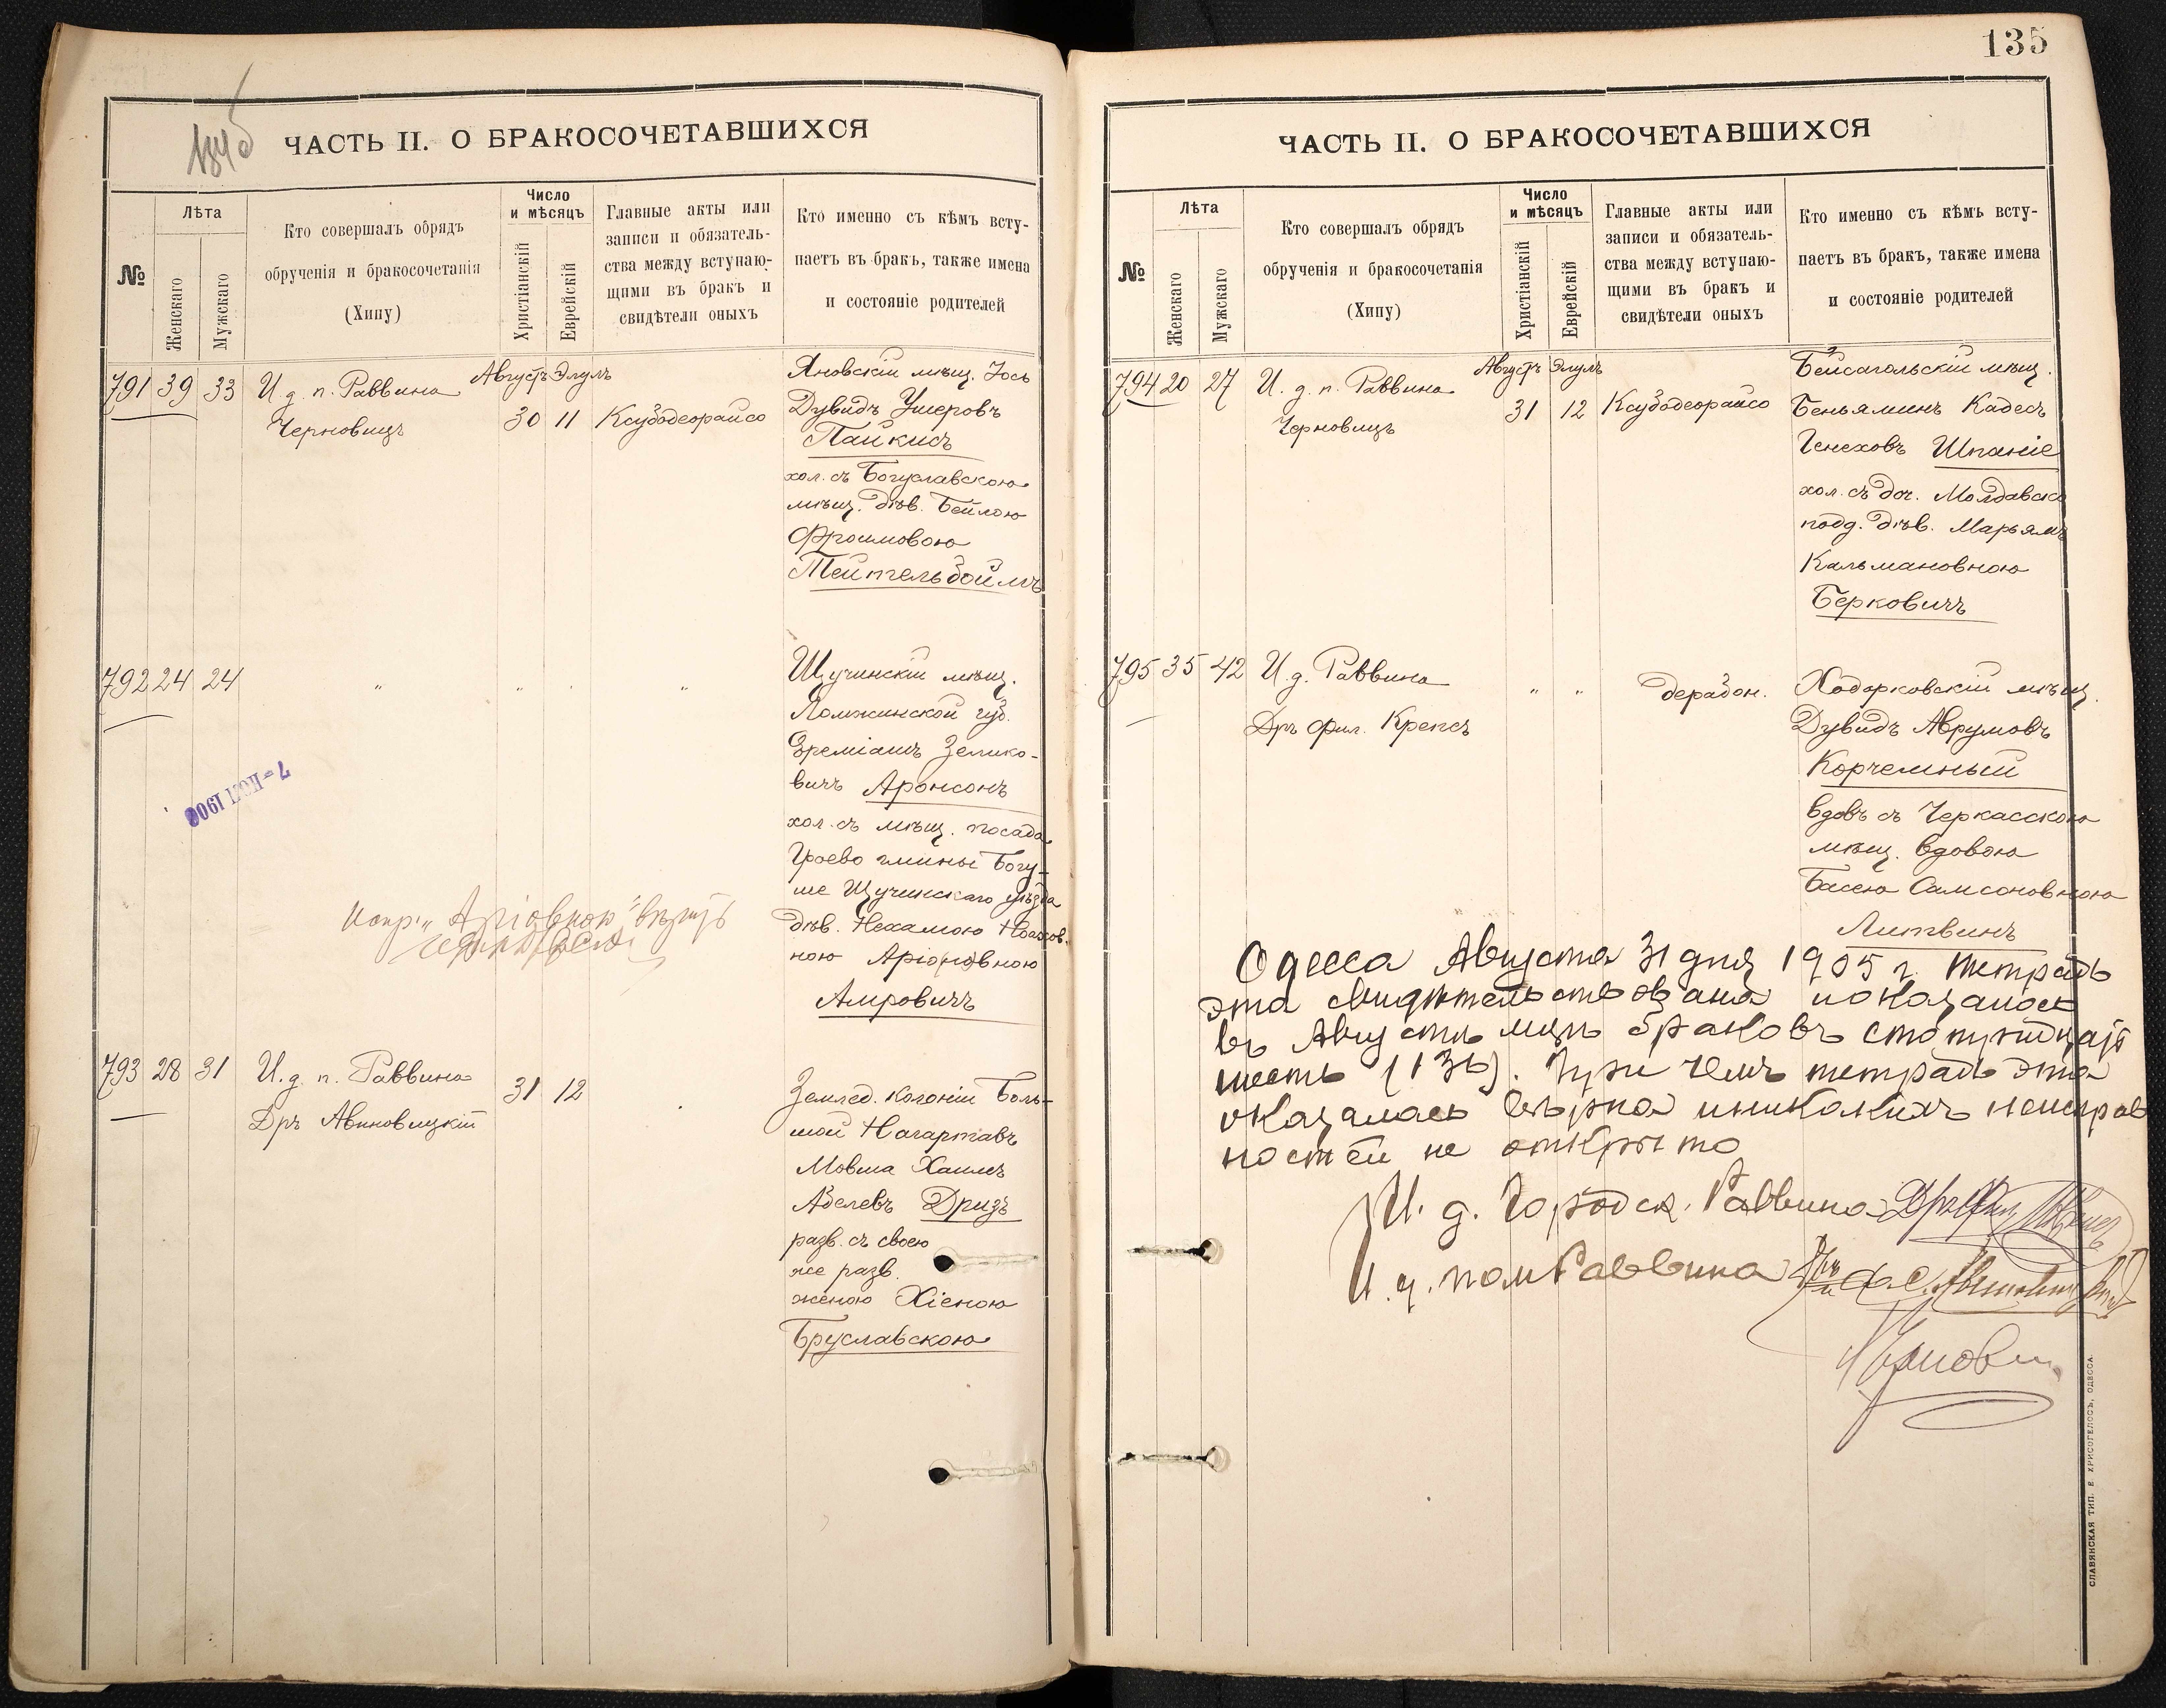 134б
ЧАСТЬ II. О БРАКОСОЧЕТАВШИХСЯ
№
Лѣта
Женскаго
Мужскаго
Кто совершалъ обрядъ
обрученія и бракосочетанія
(Хипу)
Число
и мѣсяцъ
Христіанскій
Еврейскій
Главные акты или
записи и обязатель-
ства между вступаю-
щими въ бракъ и
свидѣтели оныхъ
Кто именно съ кѣмъ всту-
паетъ въ бракъ, также имена
и состояніе родителей
791 39 33 И. д. п. Раввина
Черновицъ
Августъ Элулъ
30 11 Ксубодеорайсо
Яновскій мѣщ. Іось
Дувидъ Ушеровъ
Пайкисъ
хол. съ Богуславскою
мѣщ. дѣв. Бейлою
Фроимовою
Тейтельбоймъ
792 24 24 " " . "
Щучинскій мѣщ.
Ломжинской губ.
Еремiашъ Зелико-
вичъ Аронсонъ
хол. съ мѣщ. посада
Граево гмины Богу-
ше Щучинскаго уѣзда
дѣв. Нехамою Ноахов-
ною Аріо(но)вною
Амровичъ
7-НОЯ 1906
793 28 31 И. д. п. Раввина
Дръ Авиновицкій
31 12
Землед. колоніи Боль-
шой Нагартавъ
Мовша Хаимъ
Абелевъ Дризъ
разв. съ своею
же разв.
женою Хіеною
Бруславскою
135
ЧАСТЬ II. О БРАКОСОЧЕТАВШИХСЯ
№
Лѣта
Женскаго
Мужскаго
Кто совершалъ обрядъ
обрученія и бракосочетанія
(Хипу)
Число
и мѣсяцъ
Христіанскій
Еврейскій
Главные акты или
записи и обязатель-
ства между вступаю-
щими въ бракъ и
свидѣтели оныхъ
Кто именно съ кѣмъ всту-
паетъ въ бракъ, также имена
и состояніе родителей
794 20 27 И. д. п. Раввина
Черновицъ
Августъ Элулъ
31 12 Ксубодеорайсо
Бейсагольскій мѣщ.
Беньяминъ Кадесъ
Генеховъ Шпаніе
хол. съ доч. Молдавск
подд. дѣв. Марьямъ
Кальмановною
Берковичъ
795 35 42 И. д. Раввина
Дръ Фил. Крепсъ
" " дерабон.
Ходорковскій мѣщ.
Дувидъ Аврумовъ
Корчемный
вдовъ съ Черкасскою
мѣщ. вдовою
Басею Самсоновною
Литвинъ
Одесса Августа 31 дня 1905 г. тетрадь
эта свидѣтельствована и оказалось
въ Августѣ мцѣ браковъ сто тридцать
шесть (136). При чемъ тетрадь эта
оказалась вѣрна и никакихъ неисправ
ностей не открыто
И. д. Городск. Раввина Дръ Фил. Крепсъ
И. д. пом Раввина Авиновицкій
Черновиц
СЛАВЯНСКАЯ ТИП. Е. ХРИСОГЕЛОСЪ, ОДЕССА.